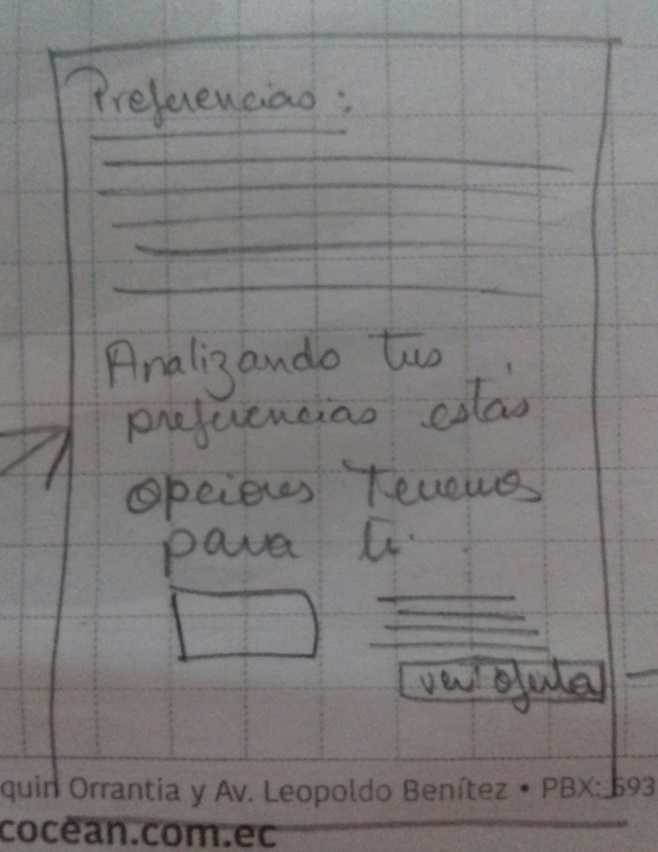 Preferencias:
Analizando tus
preferencias estás
opciones tenemos
para ti.
ver oferta
quin Orrantia y Av. Leopoldo Benítez • PBX: 593
cocean.com.ec